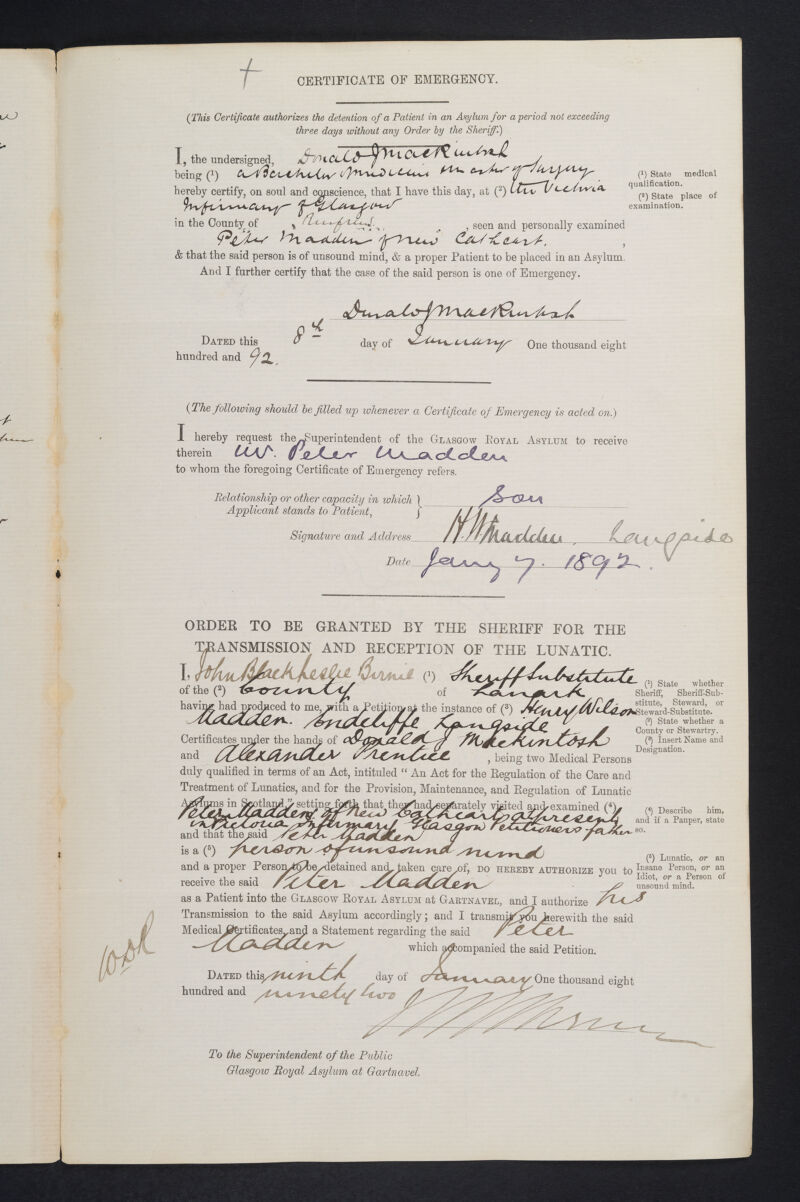 CERTIFICATE OF EMERGENCY.
(This Certificate authorizes the detention of a Patient in an Asylum for a period not exceeding
three days without any Order by the Sheriff.)
I, the undersigned, Donald J Mackintosh
being (1) a Bachelor Medicine Master of Surgery
hereby certify, on soul and conscience, that I have this day, at (2) the Victoria
Infirmary of Glasgow
in the County of Renfrew, seen and personally examined
Peter Madden of New Cathcart.,
& that the said person is of unsound mind, & a proper Patient to be placed in an Asylum.
And I further certify that the case of the said person is one of Emergency.
(1) State medical
qualification.
(2) State place of
examination.
Donald J Mackintosh
DATED this 8th day of January One thousand eight
hundred and 92.
(The following should be filled up whenever a Certificate of Emergency is acted on.)
I hereby request the Superintendent of the GLASGOW ROYAL ASYLUM to receive
therein Mr. Peter Madden
to whom the foregoing Certificate of Emergency refers.
Relationship or other capacity in which } Son
Applicant stands to Patient,
Signature and Address H.W. Madden. Langside
Date Jany 7. 1892.
ORDER TO BE GRANTED BY THE SHERIFF FOR THE
TRANSMISSION AND RECEPTION OF THE LUNATIC.
I, John Black Leslie Birnie (1) Sheriff Substitute
of the (2) County of Lanark
having had produced to me, with a Petition at the instance of (3) Henry Wilson
Madden. Endcliffe Langside
Certificates under the hands of Donald J Mackintosh
and Alexander Prentice, being two Medical Persons
duly qualified in terms of an Act, intituled "An Act for the Regulation of the Care and
Treatment of Lunatics, and for the Provision, Maintenance, and Regulation of Lunatic
Asylums in Scotland," setting forth that they had separately visited and examined (4)
Peter Madden of New Cathcart at present
in Victoria Infirmary Glasgow Petitioners father
and that the said Peter Madden
is a (5) person of unsound mind
and a proper Person to be detained and taken care of, DO HEREBY AUTHORIZE you to
receive the said Peter Madden
as a Patient into the GLASGOW ROYAL ASYLUM AT GARTNAVEL, and I authorize his
Transmission to the said Asylum accordingly; and I transmit you herewith the said
Medical Certificates, and a Statement regarding the said Peter
Madden which accompanied the said Petition.
(1) State whether
Sheriff, Sheriff-Sub-
stitute, Steward, or
Steward-Substitute.
(2) State whether a
County or Stewartry.
(3) Insert Name and
Designation.
(4) Describe him,
and if a Pauper, state
so.
(5) Lunatic, or an
Insane Person, or an
Idiot, or a Person of
unsound mind.
DATED this ninth day of January One thousand eight
hundred and ninety two
To the Superintendent of the Public
Glasgow Royal Asylum at Gartnavel.